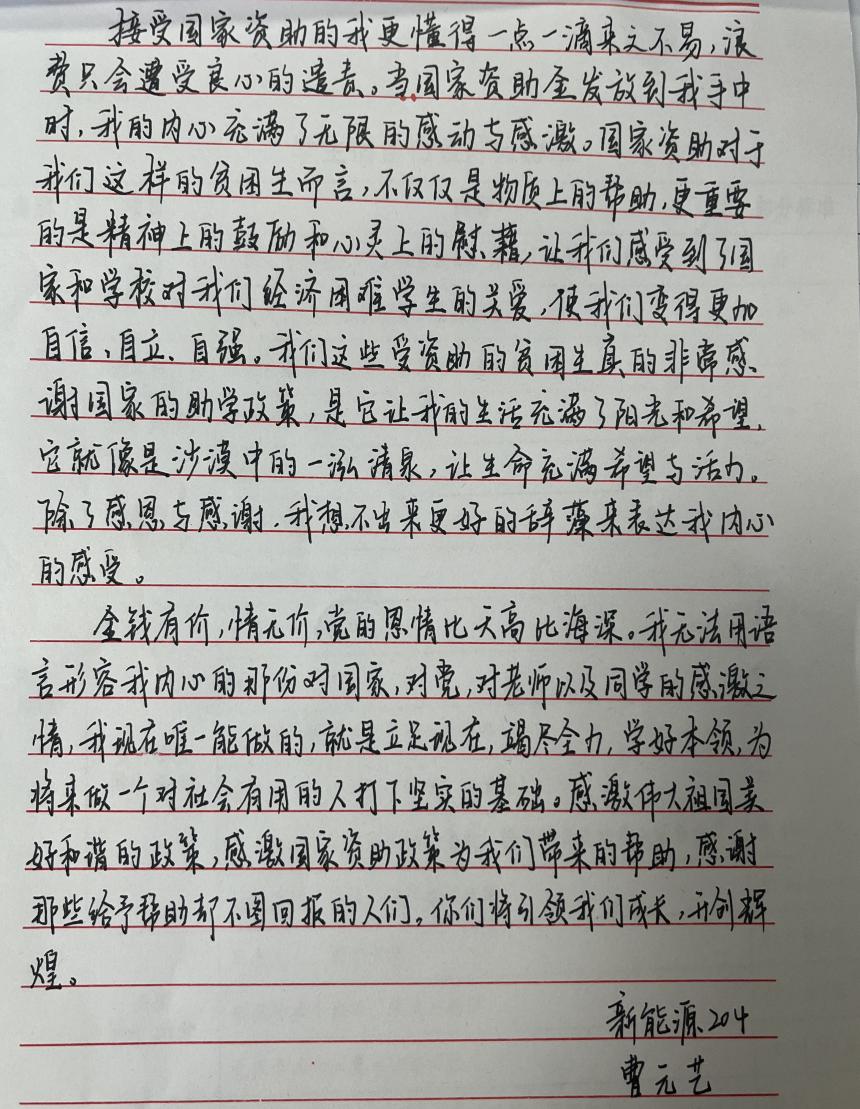 接受国家资助的我更懂得一点一滴来之不易，浪
费只会遭受良心的谴责。当国家资助金发放到我手中
时，我的内心充满了无限的感动与感激。国家资助对于
我们这样的贫困生而言，不仅仅是物质上的帮助，更重要
的是精神上的鼓励和心灵上的慰藉，让我们感受到了国
家和学校对我们经济困难学生的关爱，使我们变得更加
自信、自立、自强。我们这些受资助的贫困生真的非常感
谢国家的助学政策，是它让我的生活充满了阳光和希望，
它就像是沙漠中的一泓清泉，让生命充满希望与活力。
除了感恩与感谢，我想不出来更好的辞藻来表达我内心
的感受。
金钱有价，情无价，党的恩情比天高比海深。我无法用语
言形容我内心的那份对国家，对党，对老师以及同学的感激之
情，我现在唯一能做的，就是立足现在，竭尽全力，学好本领，为
将来做一个对社会有用的人打下坚实的基础。感激伟大祖国美
好和谐的政策，感激国家资助政策为我们带来的帮助，感谢
那些给予帮助却不图回报的人们。你们将引领我们成长，开创辉
煌。
新能源204
曹元艺